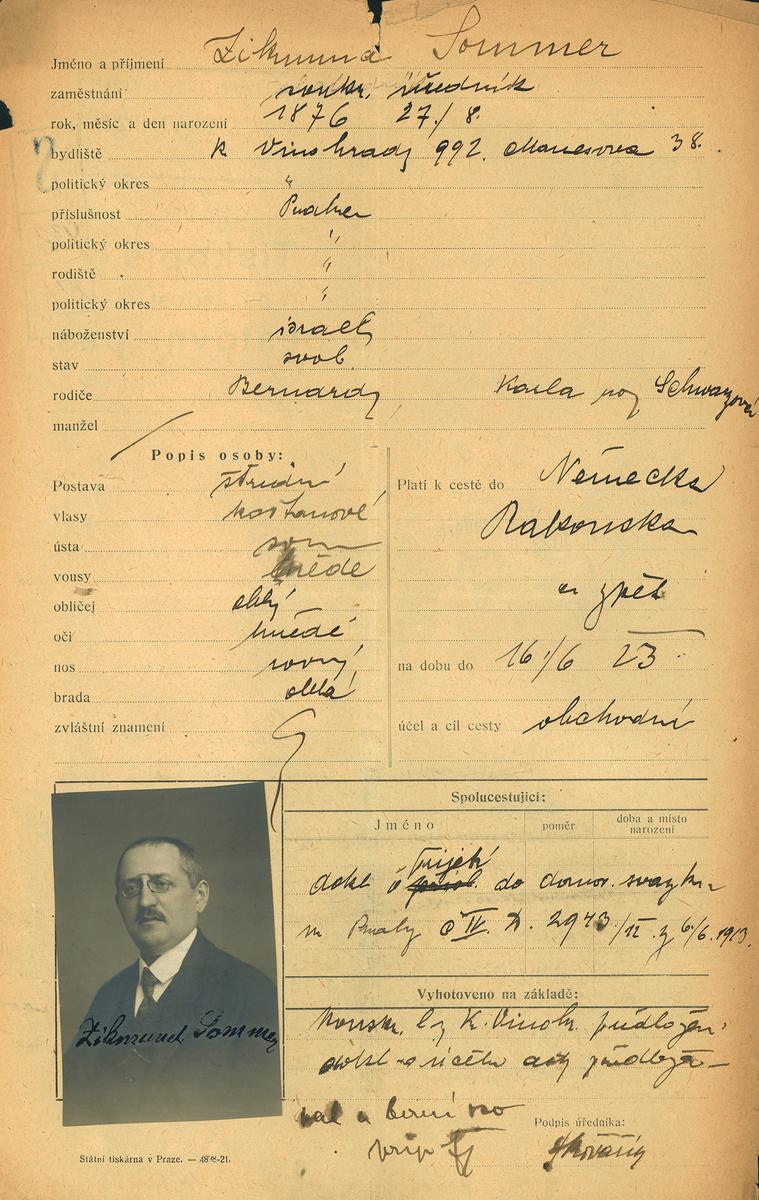 Jméno a příjmení Zikmund Sommer
zaměstnání soukr. úředník
rok, měsíc a den narození 1876 27./8.
bydliště K Vinohrady 992. Manesova 38.
politický okres "
příslušnost Praha
politický okres "
rodiště "
politický okres "
náboženství israel
stav svob
rodiče Bernard Karla roz Schwarzová
manžel
Popis osoby:
Postava střední
vlasy kaštanové
ústa
vousy hnědé
obličej oblý
oči hnědé
nos rovný
brada oblá
zvláštní znamení
Platí k cestě do Německa
Rakouska
a zpět
na dobu do 16./6 23
účel a cíl cesty obchodní
Spolucestující:
Jméno poměr doba a místo narození
dokl o přijetí do domov. svazku
m Prahy č IV. 2943/II. z 6/6. 1913.
Vyhotoveno na základě:
K. Vinoh. předložen
dokl
a berní
Podpis úředníka:
Zikmund Sommer
Státní tiskárna v Praze. — 4898-21.